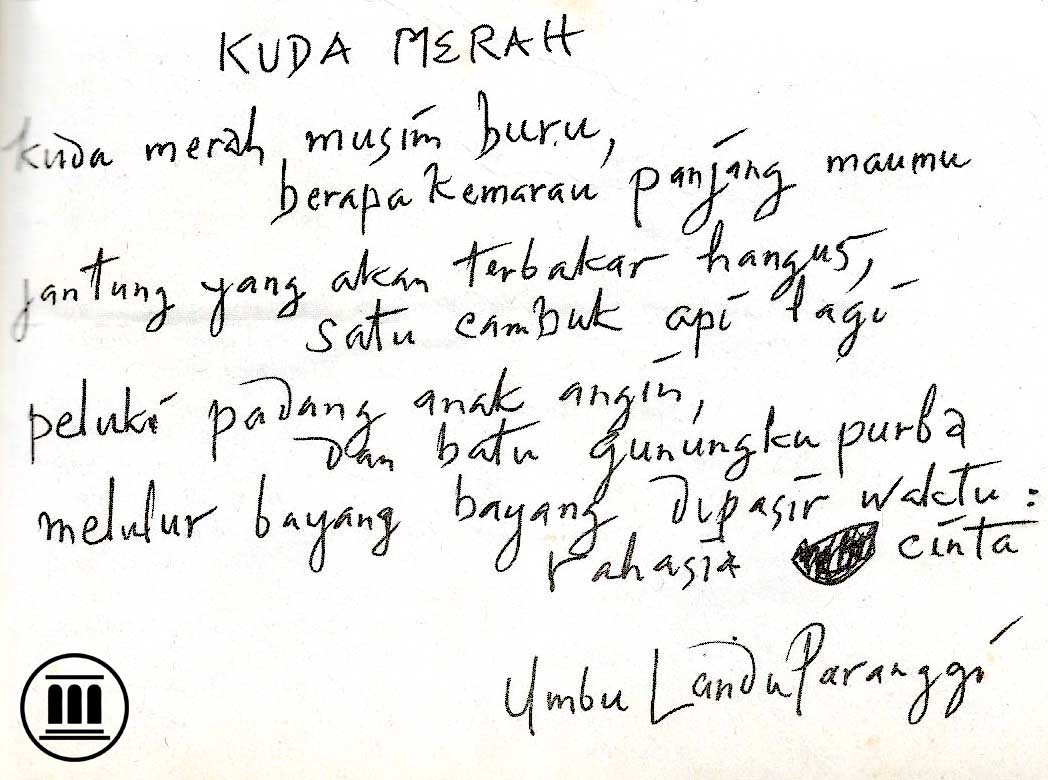 KUDA MERAH
kuda merah musim buru,
berapa kemarau panjang maumu
jantung yang akan terbakar hangus,
satu cambuk api lagi
peluki padang anak angin,
dan batu gunungku purba
melulur bayang bayang dipasir waktu:
rahasia cinta
Umbu Landu Paranggi